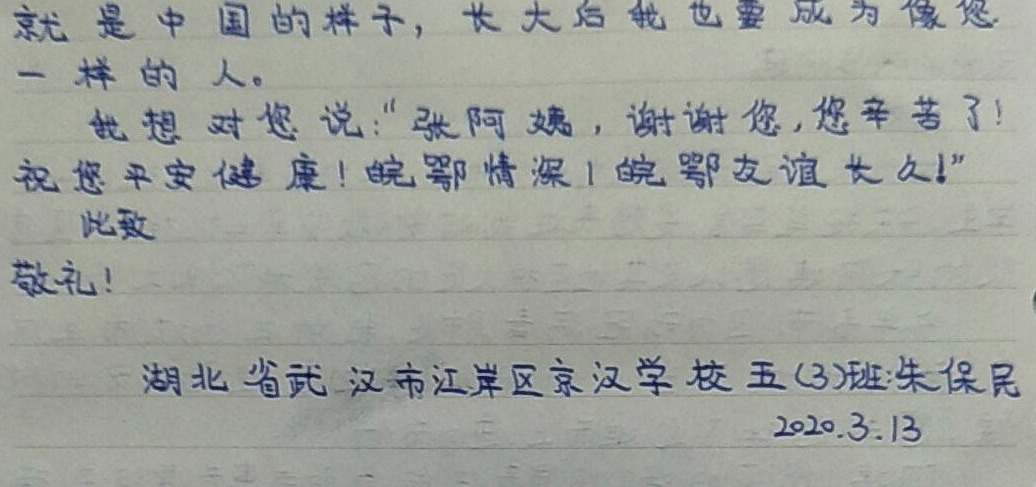 就是中国的样子，长大后我也要成为像您
一样的人。
我想对您说：“张阿姨，谢谢您，您辛苦了！
祝您平安健康！皖鄂情深！皖鄂友谊长久！”
此致
敬礼！
湖北省武汉市江岸区京汉学校五(3)班:朱保民
2020.3.13